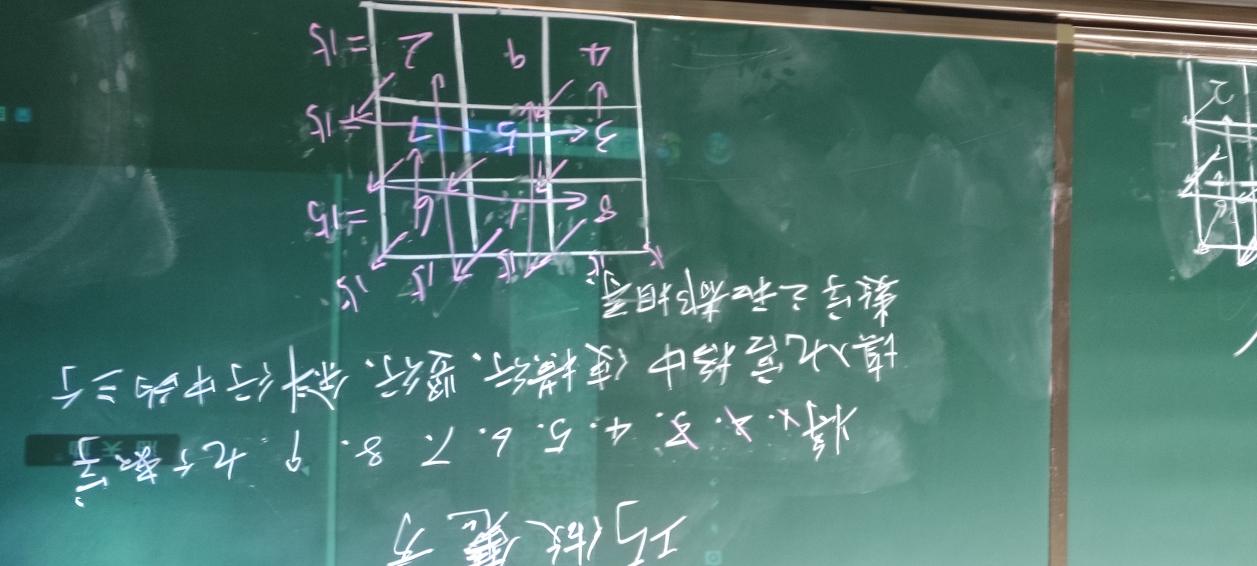 巧做魔方
将1.2.3.4.5.6.7.8.9九个数字
填入九宫格中使横行、竖行、斜行中的三个
数字之和都相等
15 15 15 15 15
8 1 6 =15
3 5 7 =15
4 9 2 =15